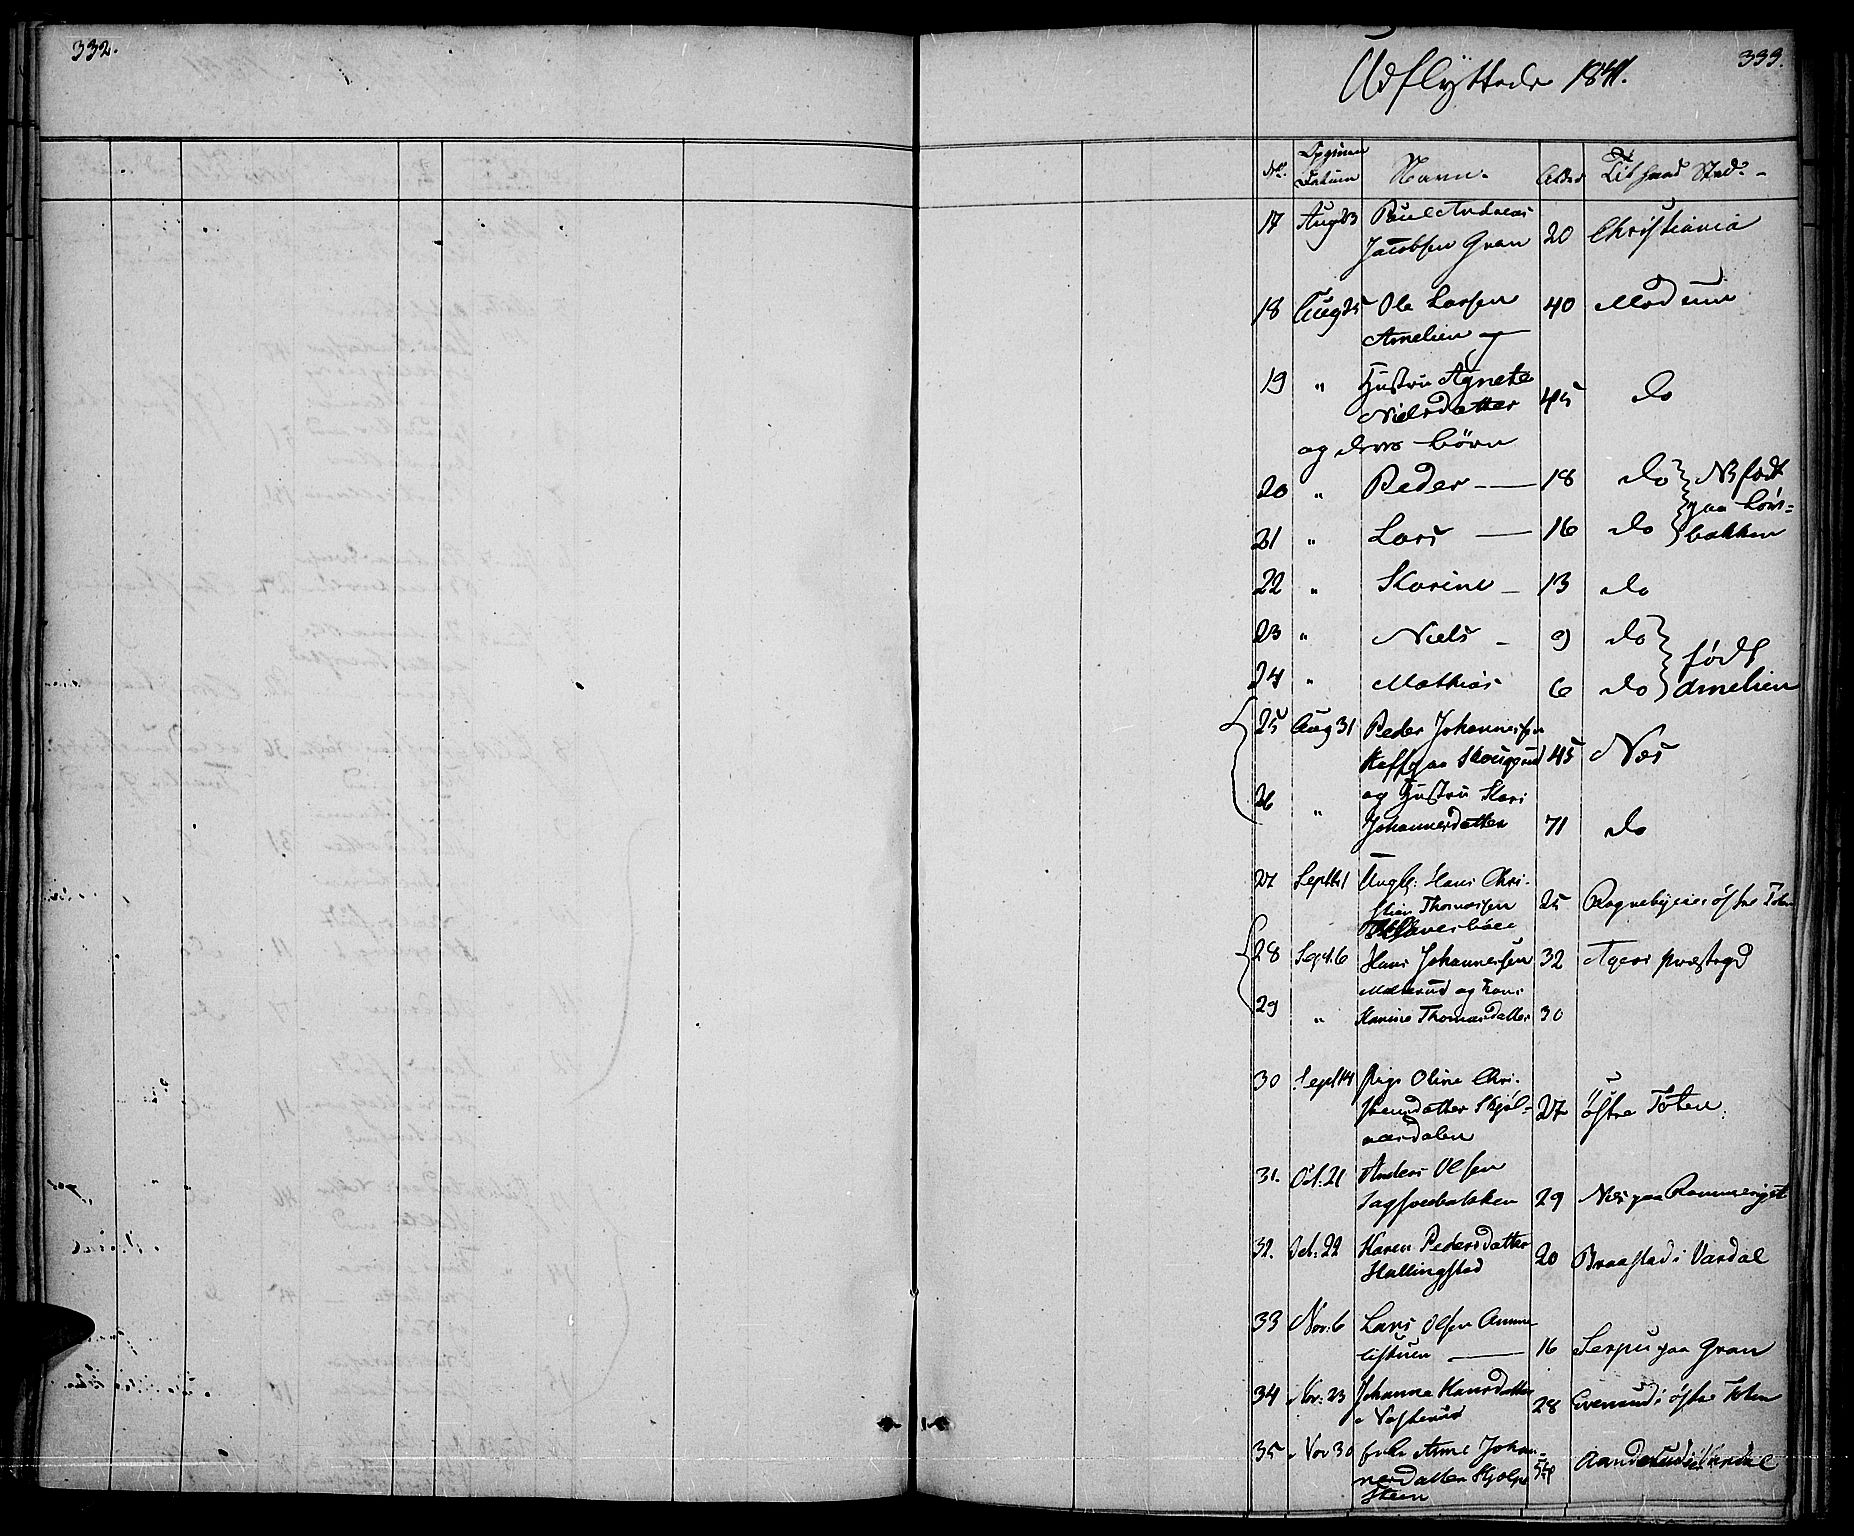 332.
333.
Udflyttede 1841.
No. Datum Navn. Alder Sted.
17 Aug 23 Poul Andreas
Jacobsen Gran 20 Christiania
18 Aug 25 Ole Larsen 40 Modum
Amelien og
19 " Hustru Agnete
Nielsdatter 45 do
og deres börn
20 " Peder — 18 do NB födt
paa
21 " Lars — 16 do bakken
22 " Karine — 13 do
23 " Niels — 9 do
födt
24 " Mathias 6 do Amelien
25 Aug 31 Peder Johannesen
45 Næs
26 " og Hustru Kari
Johannesdatter 71 do
27 Septbr 1 Ungk: Hans Chri-
stian Thomasen 25 östre Toten
28 Sept. 6 Hans Johannesen 32 Agers præstegd
og Kone
29 " Karine Thomasdatter 30
30 Sept 14 Pige Oline Chri-
stensdatter Skjöl- 27 östre Toten.
aasdalen
31. Oct. 21 Anders Olsen
29 Næs paa Rommerige
32. Oct. 22 Karen Pedersdatter
Hallingstad 20 Braastad i Vardal
33 Nov. 6 Lars Olsen
— 16 paa Gran
34 Nov. 23 Johanne Hansdatter
28 Evenrud i östre Toten
35 Nov 30 Enke Anne Johan-
nesdatter Vardal